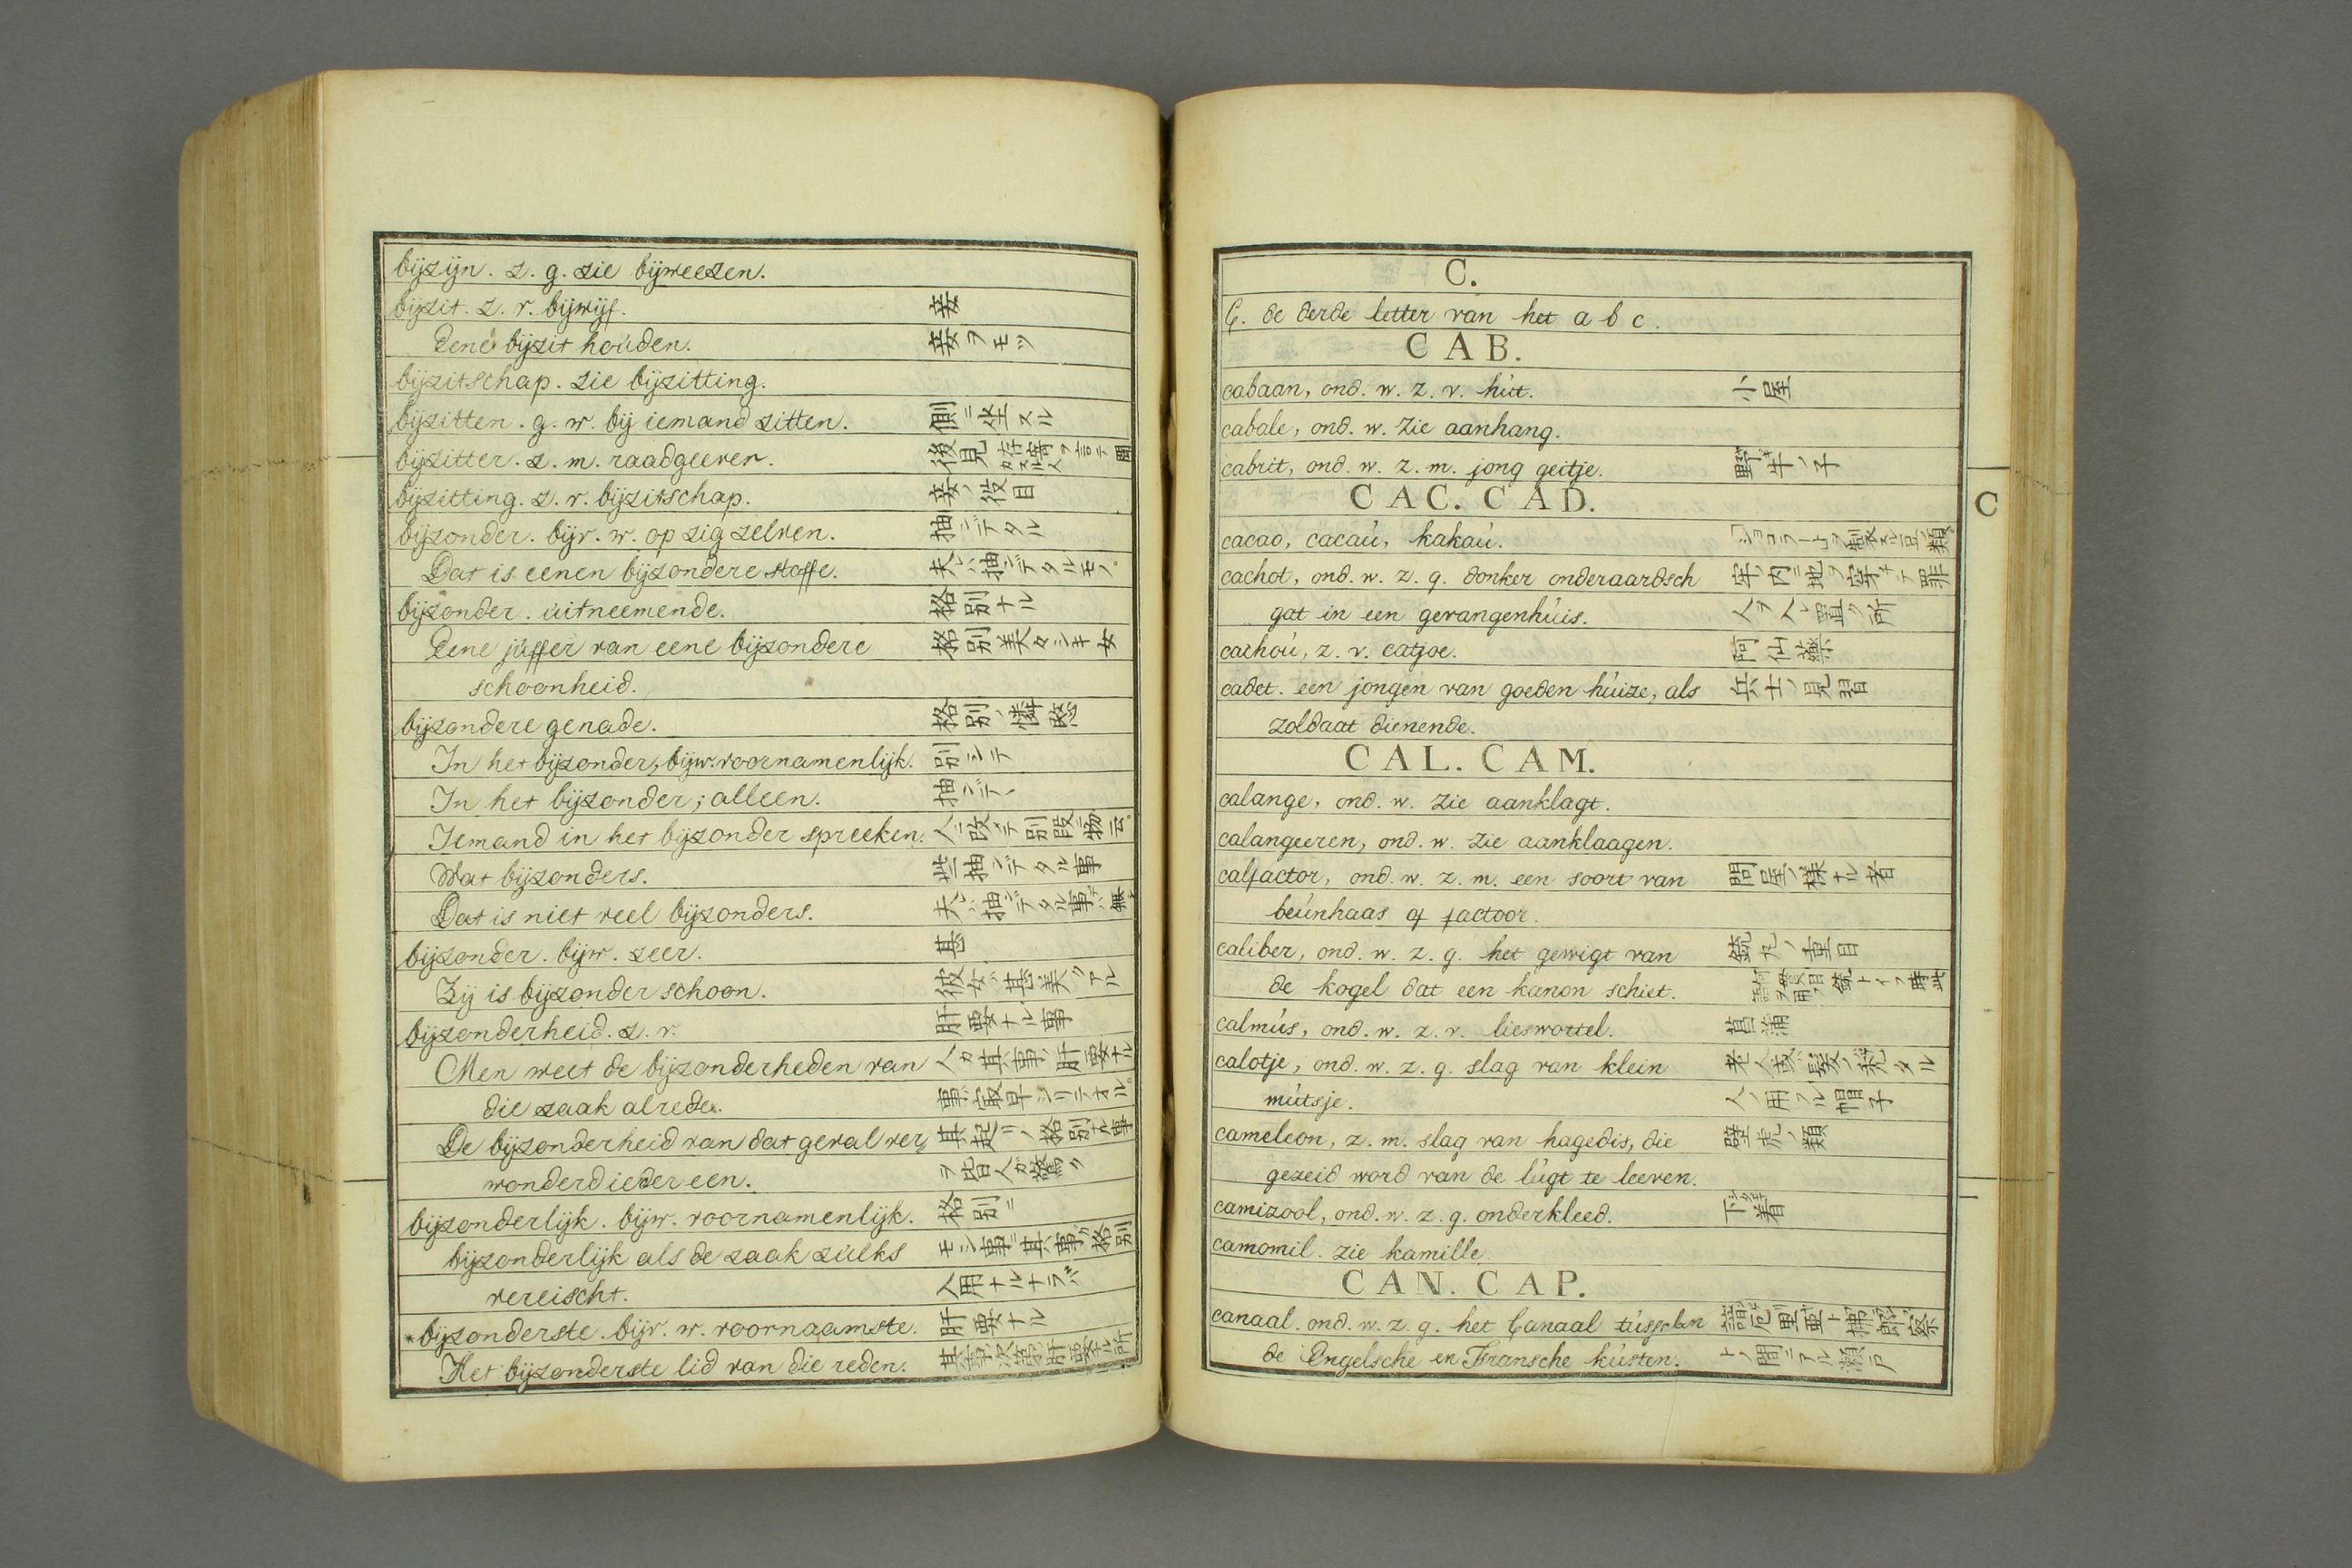 bijzijn. z. g. zie bijweezen.
bijzit. z. v. bijwijf. 妾
Eene bijzit houden. 妾ヲモツ
bijzitschap. zie bijzitting.
bijzitten. g. w. bij iemand zitten. 側ニ坐スル
bijzitter. z. m. raadgeever. 後見
bijzitting. z. v. bijzitschap. 妾ノ役目
bijzonder. bijv. w. op zig zelven. 抽デタル
Dat is eenen bijzondere stoffe. 夫レハ抽デタルモノ
bijzonder. uitneemende. 格別ナル
Eene juffer van eene bijzondere 格別美々シキ女
schoonheid.
bijzondere genade. 格別ノ憐愍
In het bijzonder, bijw. voornamenlijk. 別シテ
In het bijzonder; alleen. 抽デヽ
Iemand in het bijzonder spreeken. 人ニ改メテ別段ニ物云
Wat bijzonders. 些抽デタル事
Dat is niet veel bijzonders. 夫レハ抽デタル事ハ無
bijzonder. bijw. zeer. 甚
Zij is bijzonder schoon. 彼女ハ甚美クアル
bijzonderheid. z. v. 肝要ナル事
Men weet de bijzonderheden van 人カ其事ノ肝要ナル
die zaak alrede. 事ハ最早シリテオル
De bijzonderheid van dat geval ver, 其起リノ格別ナル事
wonderd ieder een. ヲ皆人ガ驚ク
bijzonderlijk. bijw. voornamenlijk. 格別ニ
bijzonderlijk als de zaak zulks モシ事ニ其事ガ格別
vereischt. 入用ナルナラバ
*bijzonderste. bijv. w. voornaamste. 肝要ナル
Het bijzonderste lid van die reden. 其事ノ次第ノ肝要ナル所
C.
C. de derde letter van het a b c.
CAB.
cabaan, ond. w. z. v. hút. 小屋
cabale, ond. w. zie aanhang.
cabrit, ond. w. z. m. jong geitje. 野牛ノ子
CAC. CAD.
C
cacao, cacaú, kakaú. 「ショコラート」ヲ製スル豆ノ類
cachot, ond. w. z. g. donker onderaardsch 牢ノ内ニ地ヲ穿チテ罪
gat in een gevangenhúis. 人ヲ入レ置ク所
cachoú, z. v. catjoe. 阿仙藥
cadet. een jongen van goeden húize, als 兵士ノ見習
zoldaat dienende.
CAL. CAM.
calange, ond. w. zie aanklagt.
calangeeren, ond. w. zie aanklaagen.
calfactor, ond. w. z. m. een soort van 問屋ノ樣ナル者
beúnhaas of factoor.
caliber, ond. w. z. g. het gewigt van 銃丸ノ重目
de kogel dat een kanon schiet.
calmús, ond. w. z. v. lieswortel. 菖蒲
calotje, ond. w. z. g. slag van klein 老人或ハ髮ノ禿タル
mútsje. 人ノ用フル帽子
cameleon, z. m. slag van hagedis, die 壁虎ノ類
gezeid word van de lúgt te leeven.
camizool, ond. w. z. g. onderkleed. 下着
camomil. zie kamille.
CAN. CAP.
canaal. ond. w. z. g. het Canaal tússchen 諳厄里亜ト拂郎察
de Engelsche en Fransche kústen. トノ間ニアル瀬戸